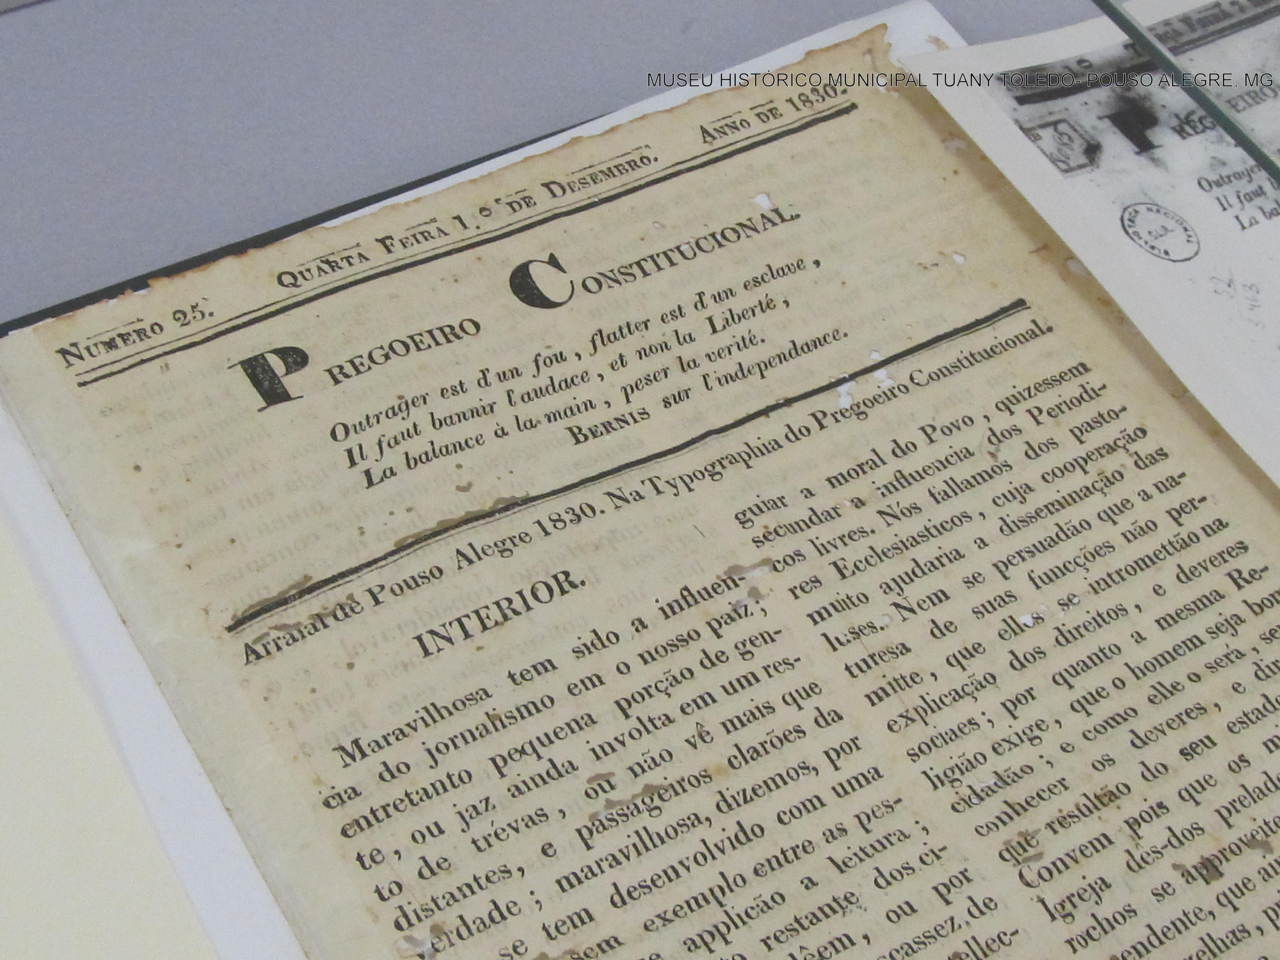 MUSEU HISTÓRICO MUNICIPAL TUANY TOLEDO- POUSO ALEGRE. MG
NUMERO 25. QUARTA FEIRA 1.º DE DESEMBRO. ANNO DE 1830.
PREGOEIRO CONSTITUCIONAL.
Outrager est d'un fou, flatter est d'un esclave,
Il faut bannir l'audace, et non la Liberté,
La balance à la main, peser la verité.
BERNIS sur l'independance.
Arraial de Pouso Alegre 1830. Na Typographia do Pregoeiro Constitucional.
INTERIOR.
Maravilhosa tem sido a influen-
cia do jornalismo em o nosso paiz;
entretanto pequena porção de gen-
te, ou jaz ainda involta em um res-
to de trévas, ou não vê mais que
distantes, e passageiros clarões da
verdade; maravilhosa, dizemos, por
se tem desenvolvido com uma
sem exemplo entre as pes-
applicão a leitura;
restante dos ci-
lêem, ou por
de
guiar a moral do Povo, quizessem
secundar a influencia dos Periodi-
cos livres. Nós fallamos dos pasto-
res Ecclesiasticos, cuja cooperação
muito ajudaria a disseminação das
luses. Nem se persuadão que a na-
turesa de suas funcções não per-
mitte, que elles se intromettão na
explicação dos direitos, e deveres
sociaes; por quanto a mesma Re-
ligião exige, que o homem seja bom
cidadão; e como elle o será, se
conhecer os deveres, e
que resultão do seu estado
Convem pois que os
Igreja des-dos prelad
rochos se approveite
que
REG
EIRO
Outrager
Il faut
La ba